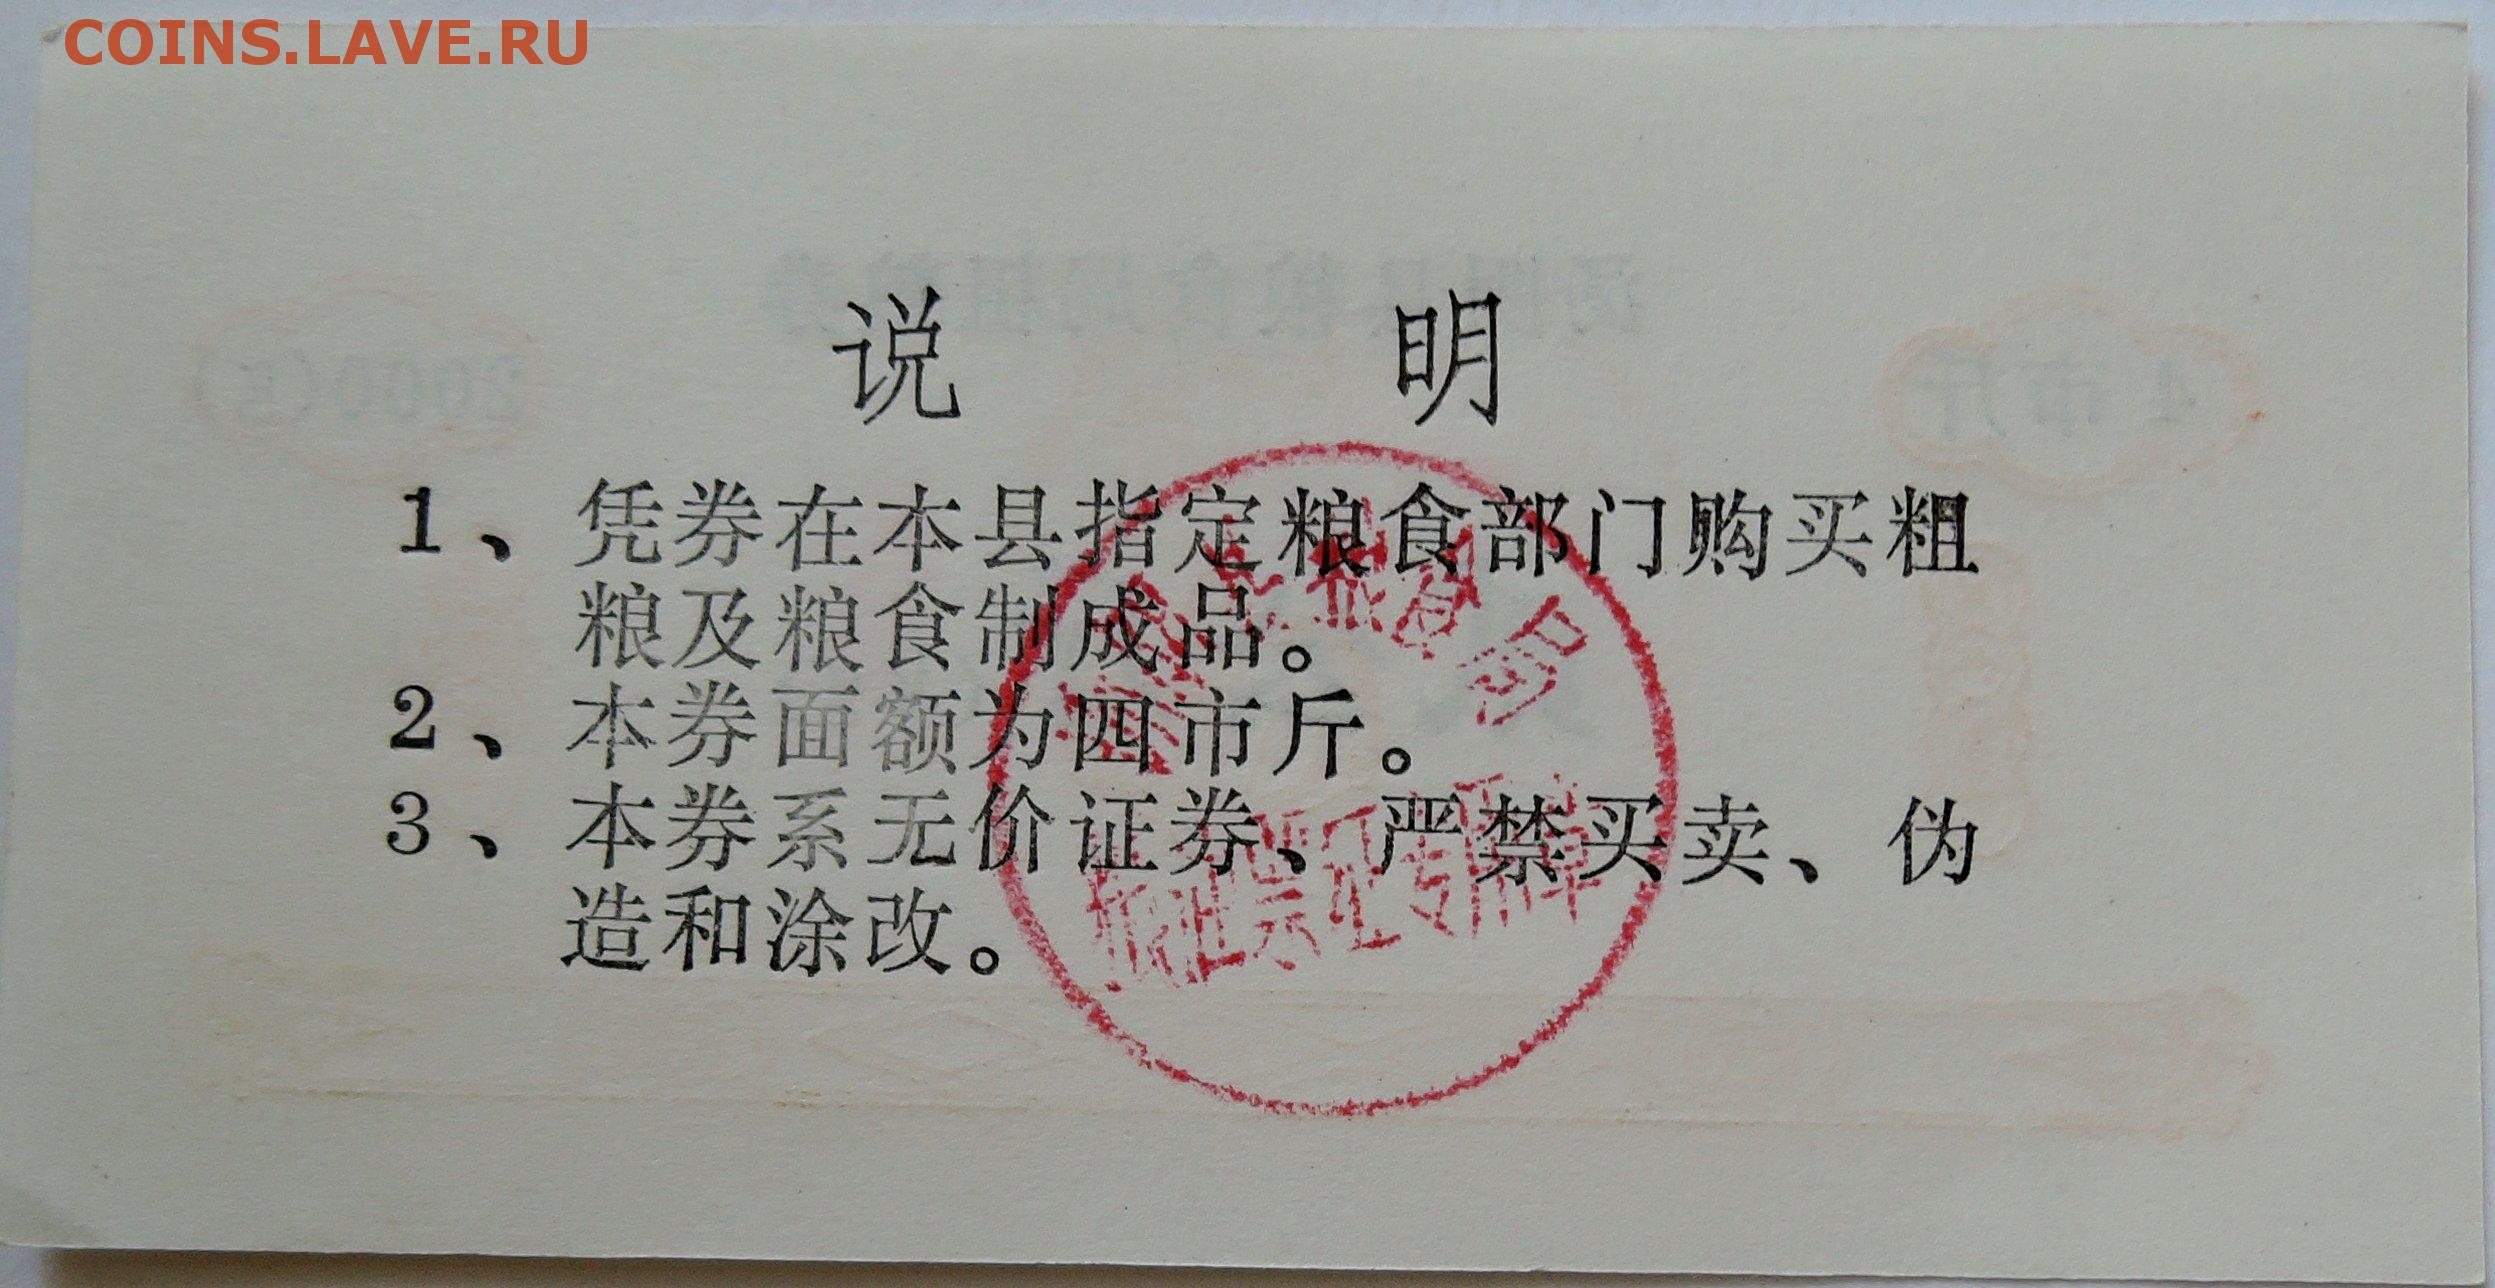 COINS.LAVE.RU
说 明
1、凭券在本县指定粮食部门购买粗
粮及粮食制成品。
2、本券面额为四市斤。
3、本券系无价证券、严禁买卖、伪
造和涂改。